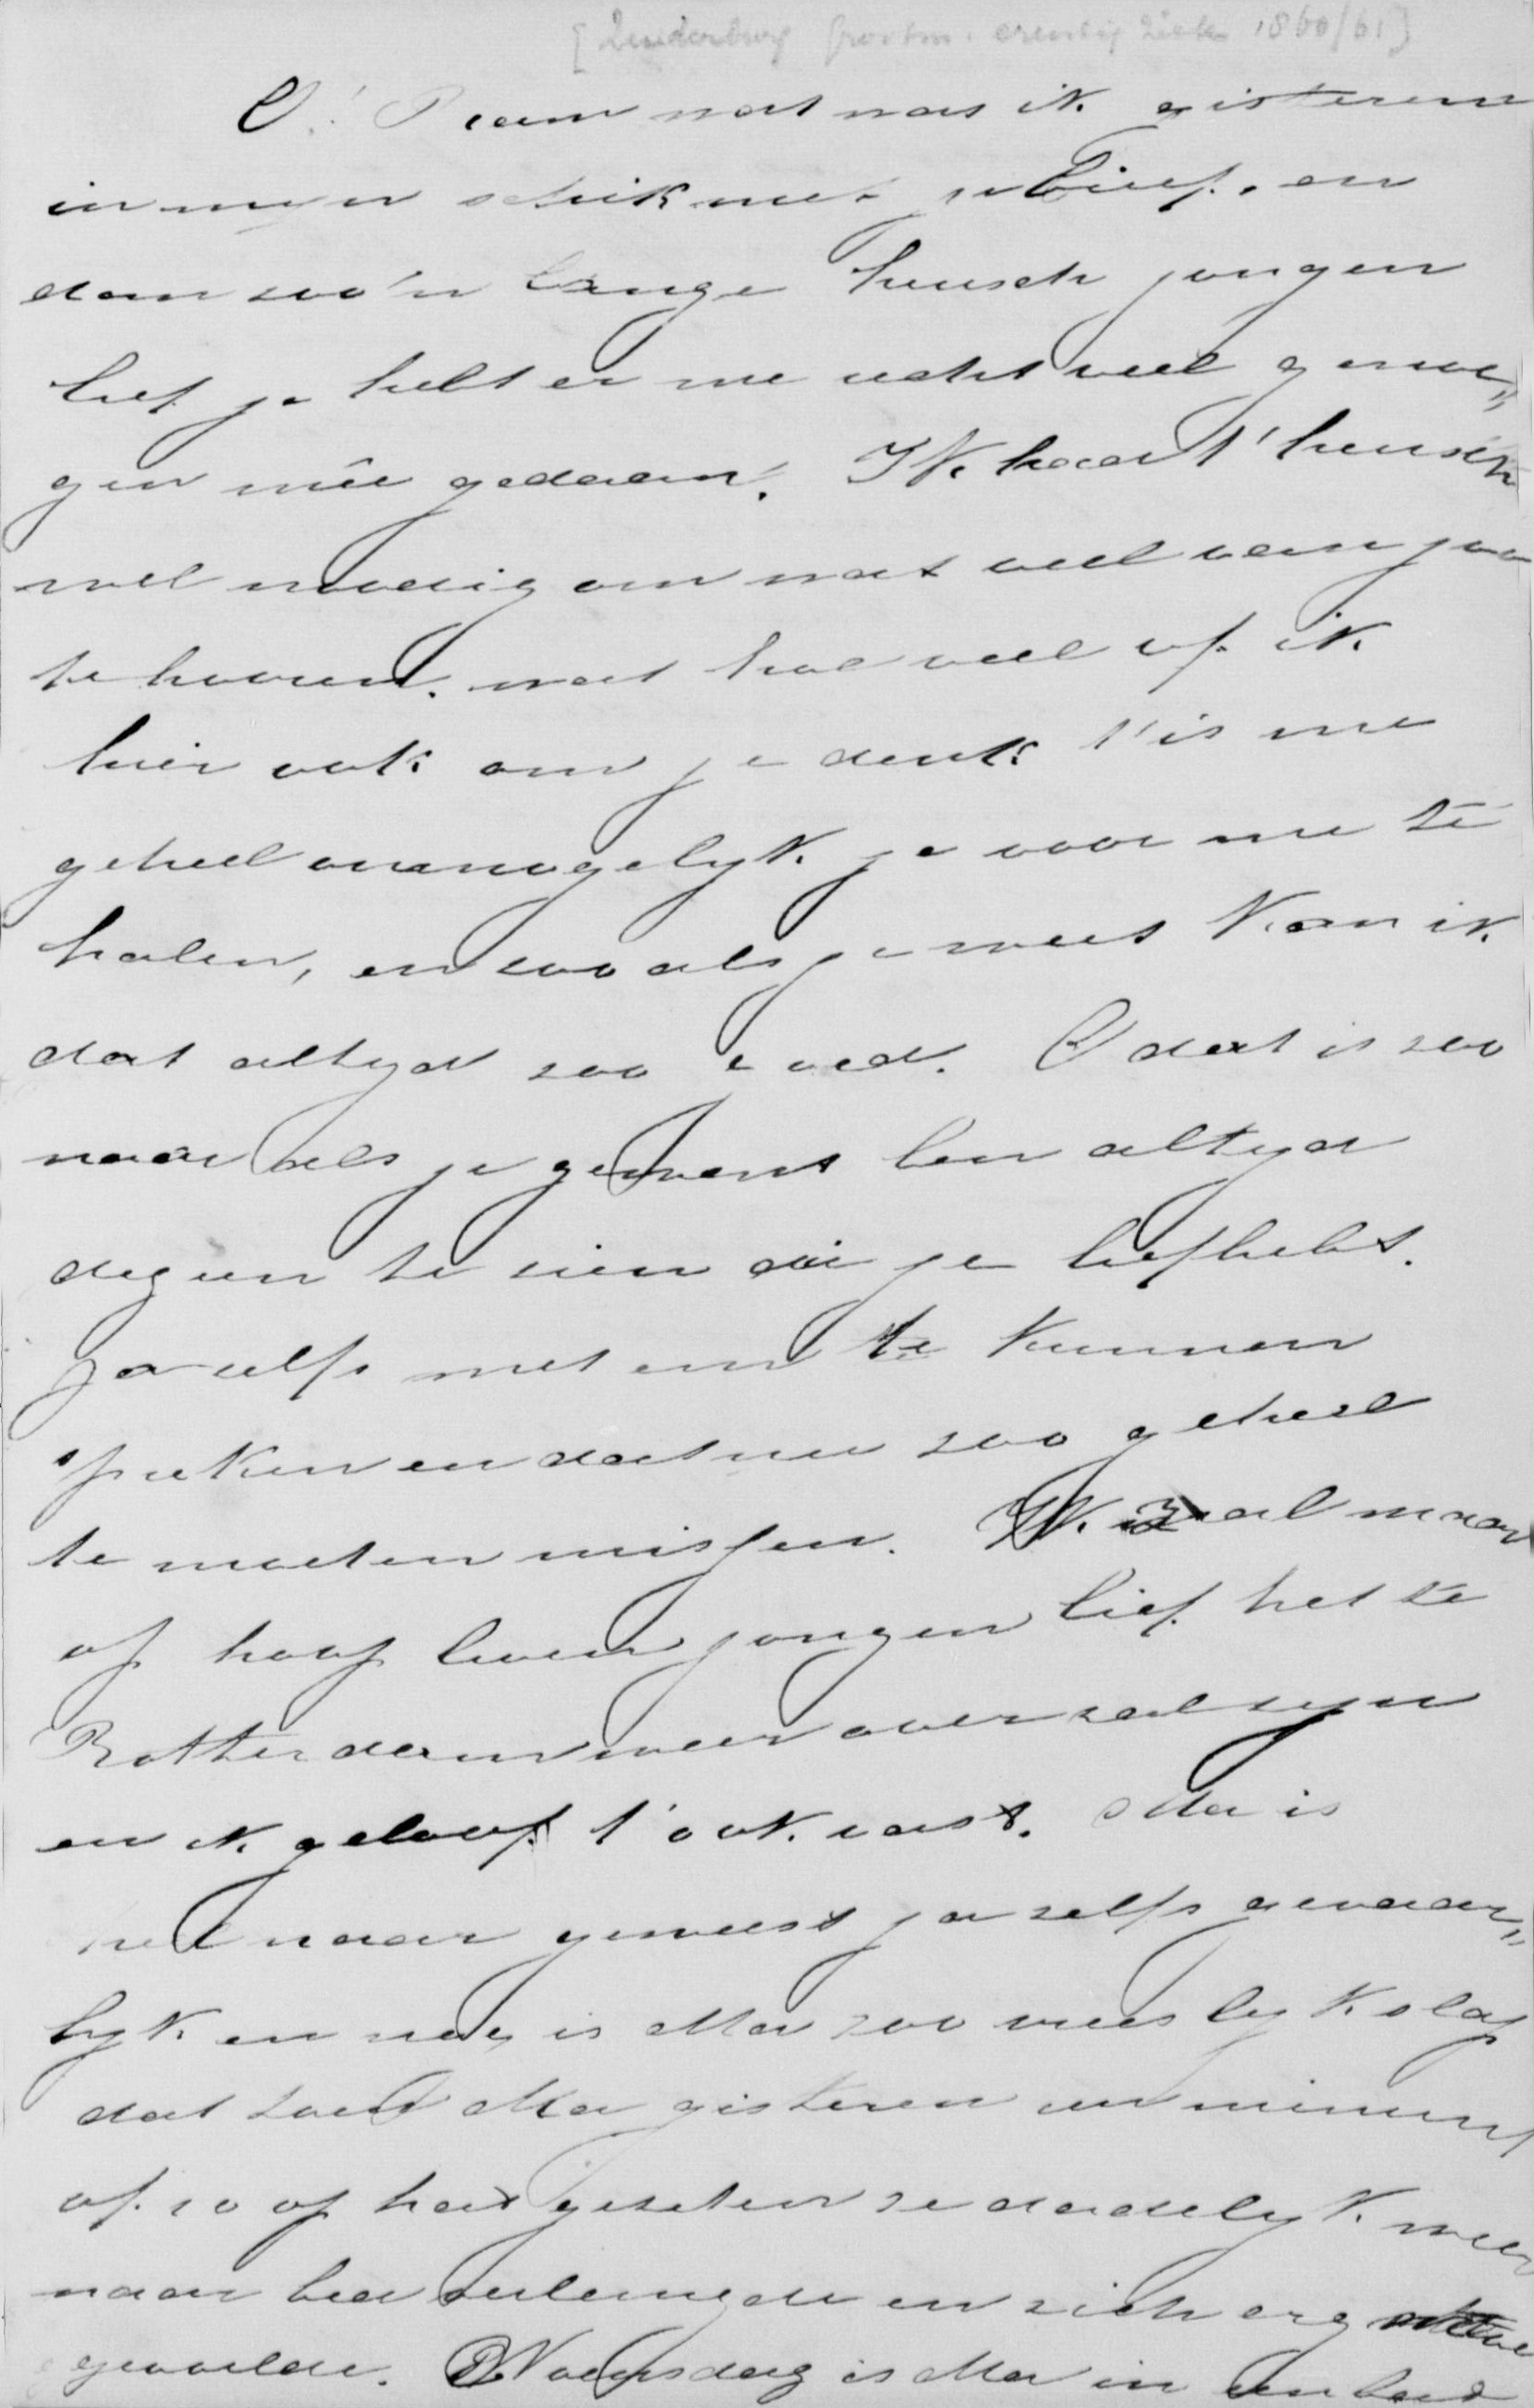 [Zuiderburg Grootm. ernstig ziek 1860/61]
O! Daan wat was ik gisteren
in myn schik met je brief, en
dan zoo'n lange heusch jongen
lief je hebt er me recht veel genoe„
gen meê gedaan. Ik had 't heusch
wel noodig om wat veel van jou
te hooren. want hoe veel of ik
hier ook om je denk t'is me
geheel onmogelyk je voor me te
halen, en zoo als je weet kan ik
dat altyd zoo goed. O dat is zoo
naar als je gewent ben altyd
degeen te zien die je liefhebt.
Ja zelfs met em te kunnen
spreken en dat nu zoo geheel
te moeten missen. Ik zal maar
op hoop leven jongen lief het te
Rotterdam weer over zal zyn
en ik geloof t'ook vast. Ma is
heel naar geweest ja zelfs gevaar„
lyk en nog is Ma zoo vreeslyk slap
dat toen Ma gisteren een minuut
of 10 op had gezeten ze dadelyk weer
naar bed verlangde en zich erg
gevoelde. Woensdag is Ma in een bad